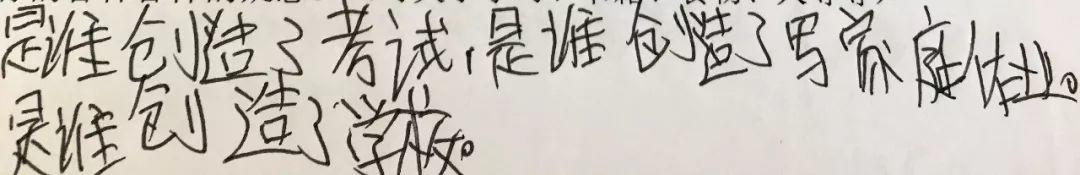 是谁创造了考试,是谁创造了写家庭作业。
是谁创造了学校。